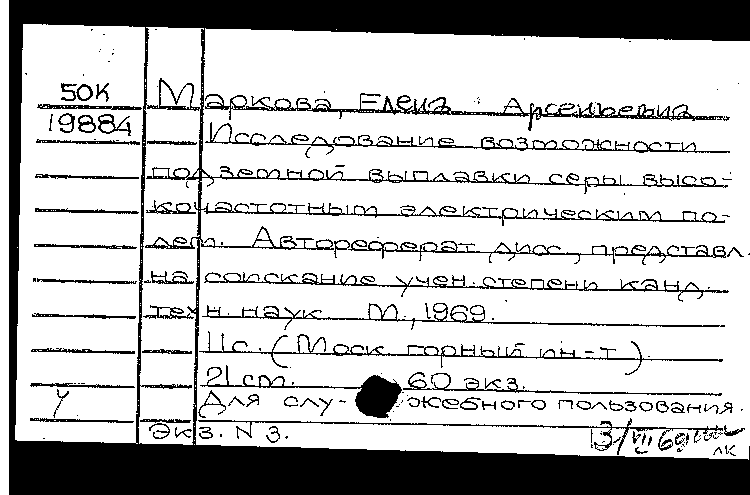 50К Маркова, Елена Арсеньевна
19884 Исследование возможности
подземной выплавки серы высо-
кочастотным электрическим по-
лем. Автореферат дисс., представл.
на соискание учен. степени канд.
техн. наук М., 1969.
11 с. (Моск. горный ин-т).
21 см. 60 экз.
У Для слу- жебного пользования.
Экз. N 3.
13/VII 69
лк